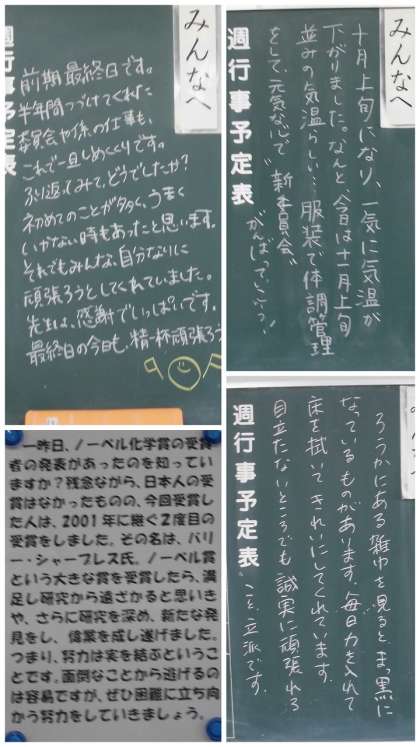 みんなへ
前期最終日です。
半年間つづけてくれた
委員会や係の仕事も、
これで一旦しめくくりです。
ふり返ってみて、どうでしたか？
初めてのことが多く、うまく
いかない時もあったと思います。
それでもみんな、自分なりに
頑張ろうとしてくれていました。
先生は、感謝でいっぱいです。
最終日の今日も、精一杯頑張ろう
週行事予定表
みんなへ
十月上旬になり、一気に気温が
下がりました。なんと、今日は十一月上旬
並みの気温らしい…服装で体調管理
をして、元気な心で“新委員会”
がんばっていこう！
週行事予定表
一昨日、ノーベル化学賞の受賞
者の発表があったのを知ってい
ますか？残念ながら、日本人の受
賞はなかったものの、今回受賞し
た人は、2001年に継ぐ2度目の
受賞をしました。その名は、バリ
ー・シャープレス氏。ノーベル賞
という大きな賞を受賞したら、満
足し研究から遠ざかると思いき
や、さらに研究を深め、新たな発
見をし、偉業を成し遂げました。
つまり、努力は実を結ぶというこ
とです。面倒なことから逃げるの
は容易ですが、ぜひ困難に立ち向
かう努力をしていきましょう。
ろうかにある雑巾を見るとまっ黒に
なっているものがあります。毎日力を入れて
床を拭いてきれいにしてくれています。
目立たないところでも誠実に頑張れる
こと、立派です。
週行事予定表